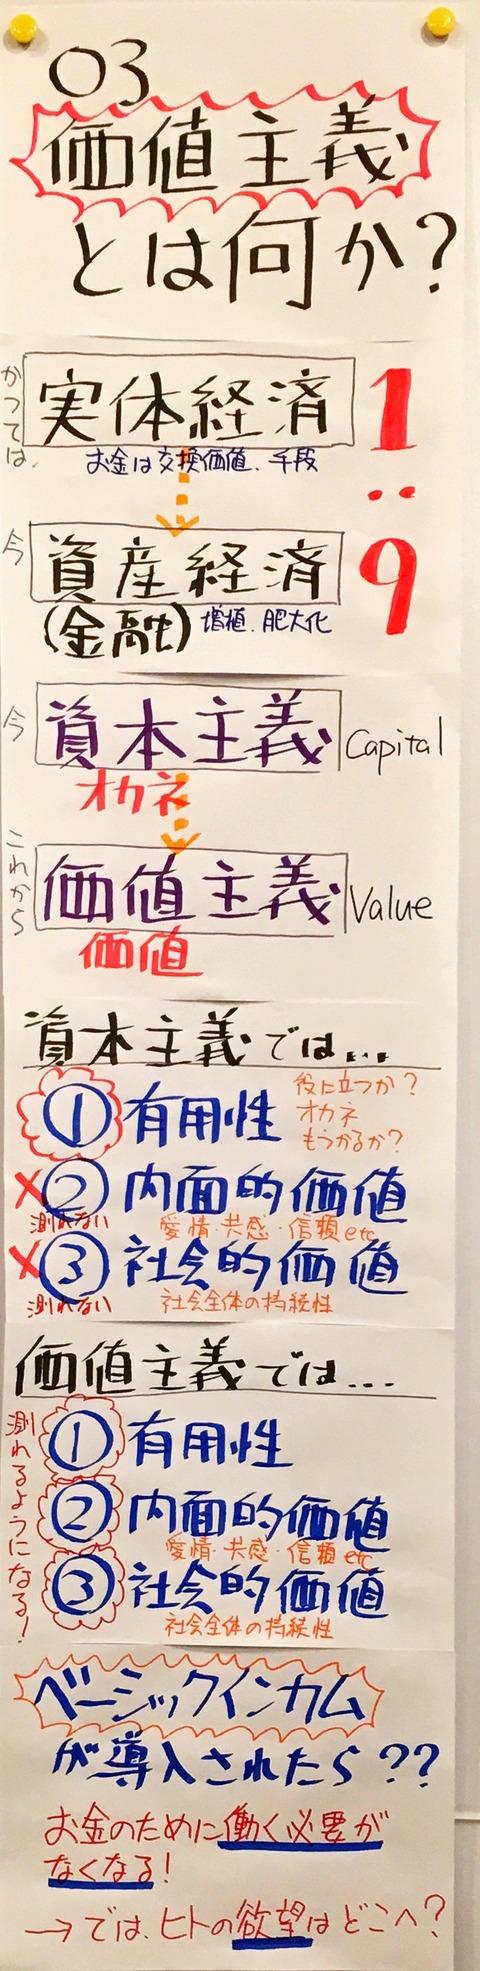 03
価値主義
とは何か？
かつては、
実体経済
1
お金は交換価値、手段
:
今
資産経済
9
(金融)
増殖、肥大化
今
資本主義
Capital
オカネ
これから
価値主義
Value
価値
資本主義では...
① 有用性
役に立つか？
オカネ
もうかるか？
× ② 内面的価値
測れない
愛情・共感・信頼etc
× ③ 社会的価値
測れない
社会全体の持続性
価値主義では...
測れるようになる！
① 有用性
② 内面的価値
愛情・共感・信頼etc
③ 社会的価値
社会全体の持続性
ベーシックインカム
が導入されたら??
お金のために働く必要が
なくなる！
→では、ヒトの欲望はどこへ？